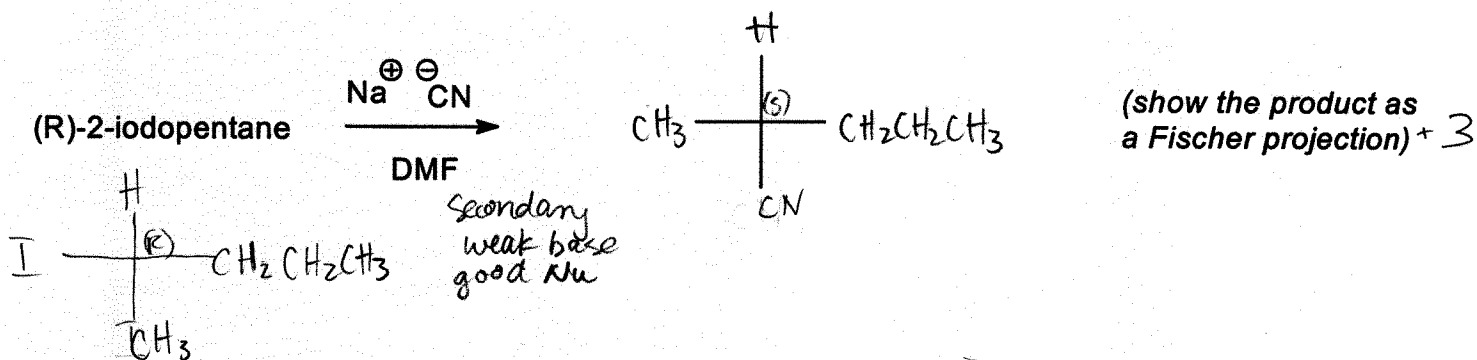 (R)-2-iodopentane
Na⊕ ⊖CN
DMF
H
CH₃ (S) CH₂CH₂CH₃
CN
(show the product as
a Fischer projection) + 3
H
I (R) CH₂CH₂CH₃
CH₃
Secondary
weak base
good Nu